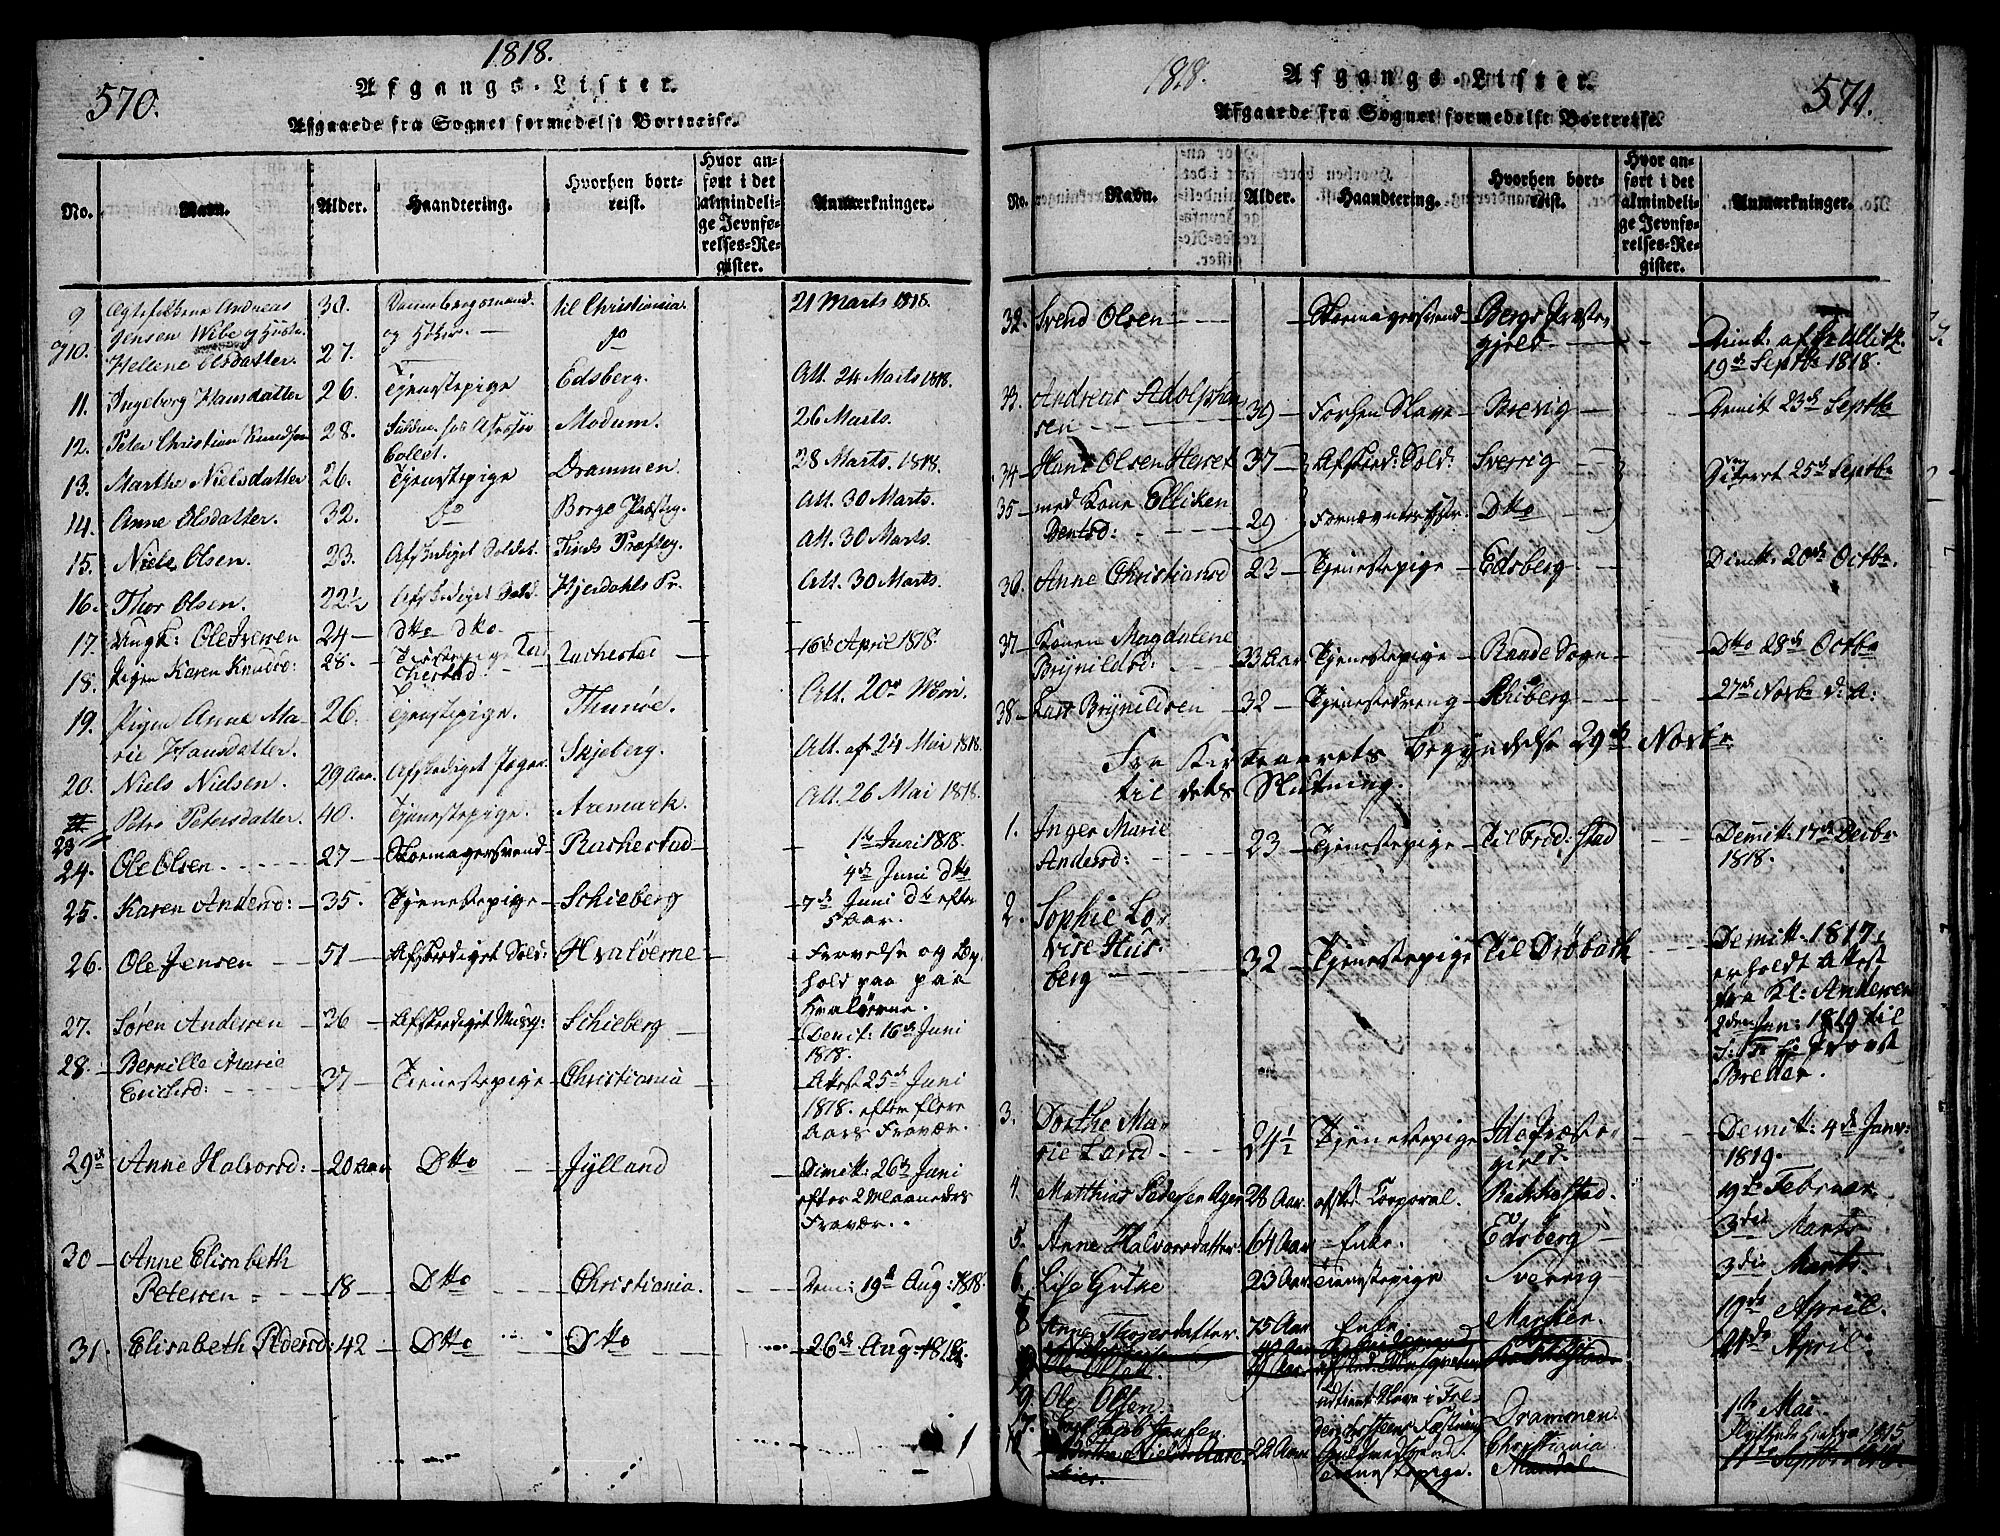 1818.
570.
Afgangs-Lister.
Afgaaede fra Sognet formedelst Bortreise.
No. Navn. Alder. Haandtering. Hvorhen bortreist. Hvor anført i det almindelige Jevnførelses-Register. Anmærkninger.
9 Andreas 30. Dannebrogsmand til Christiania 21 Marts 1818.
10. Jensen Wibe og Hustr. og do
Helene Olsdatter 27.
11. Ingeborg Hansdatter 26. Tjenestepige Edsberg. Att. 24 Marts 1818.
12. Peter Christian Knudsen 28. Modum. 26 Marts.
Collet.
13. Marthe Nielsdatter 26. Tjenestepige Drammen. 28 Marts. 1818.
14. Anne Olsdatter. 32. do Borge Præstg. Att. 30 Marts.
15. Niels Olsen. 23. Afskediget Soldat. Præsteg. Att. 30 Marts.
16. Thor Olsen. 22½ Afskediget Sold. Hjerdahls Pr. Att. 30 Marts
17. Ungk: Ole Iversen 24 — dto dto.
18. Pigen Karen Knudsd: 28. Rachestad 16de April 1818.
19. Pigen Anne Marie Hansdatter. 26. Tjenestepige. Thunøe. Att. 20de
20. Niels Nielsen. 29 Aar. Afskediget Jæger. Skjeberg. Att. af 24 Mai 1818.
23 Petro Petersdatter. 40. Tjenestepige. Aremark. Att. 26 Mai 1818.
24. Ole Olsen 27 — Skomagersvend Rachestad 1ste Juni 1818.
4de Juni dto
25. Karen Andersd: — 35. — Tjenestepige — Schieberg — 7de Juni do efter 5 Aar.
26. Ole Jensen — 51 — Afskediget Sold: — Hvaløerne — Fravelse og Ophold paa paa Hvaløerne.
27. Søren Andersen — 36 — Afskediget Musq: — Schieberg — Demit: 16de Juni 1818.
28. Bernille Marie Erichsd: — 37 — Tienestepige — Christiania — Attest 25de Juni 1818. efter flere Aars Fravær.
29de Anne Halvorsd: — 20 Aar — Dto — Jylland — Dimitt: 26de Juni efter 2 Maaneders Fravær.
30 — Anne Elisabeth Petersen — 18 — Dto — Christiania. — Dem: 19de Aug: 1818.
31. Elisabeth Pedersd: 42 — Dto — Dto — 26de Aug: 1818.
1818.
571.
Afgangs-Lister.
Afgaaede fra Sognet formedelst Bortreise.
No. Navn. Alder. Haandtering. Hvorhen bortreist. Hvor anført i det almindelige Jevnførelses-Register. Anmærkninger.
32. Svend Olsen — Skomagersvend — Bergs Præstegjeld — Dimit. af 19de Septbr 1818.
33. Andreas Adolphsen — 39 — Forhen Slave — Brevig — Demitt 23de Septbr
34 — Hans Olsen — 37 — Afsked: Sold: — Sverrig — 25de Septbr
35 — med Kone Elliken Bentsd: — 29 — Dto
36 — Anne Christiansd — 23 — Tjenestepige — Edsberg — Dimitt: 20de Octbr.
37 — Konen Magdalene Brynildsd: — 33 Aar — Tjenestepige — Raade Sogn — Dto 28de Octbr
38 — Lars Brynildsen — 32 — Tjenestedreng — Skiberg — 27de Novbr d: A:
Fra Kirkeaarets Begyndelse 29de Novbr
til dets Slutning.
1. Inger Marie Andersd: — 23 — Tjenestepige — Til Fred: stad — Demitt. 17de Decbr 1818.
2. Sophie Lovise Husberg — 32 — Tjenestepige Til Drøbach — Demitt. 1817, erholdt Attest fra Kl: Andersen 2den Jan: 1819 til Provst Breder.
3. Dorthe Marie Larsd — 24½ — Tjenestepige — Præstegield. — Demitt: 4de Janv: 1819.
4. Matthias Pedersen 28 Aar. afskd. Corporal. Rakkestad. 19de Februar
5. Anne Halvorsdatter. 64 Aar — Enke. Edsberg — 3die Marts
6. Lise 23 Aar Tienestepige Sverrig — 3die Marts
8 Anne Thoresdatter 75 Aar Enke. Marker. 19de April.
21de April
9. Ole Olsen. Slave i Frederichsteens Fæstning Drammen. 1ste Mai
Jacob Jensen Christiania 1815
10 22 Aar. Tienestepige. Mandal 11te Septbr 1818.